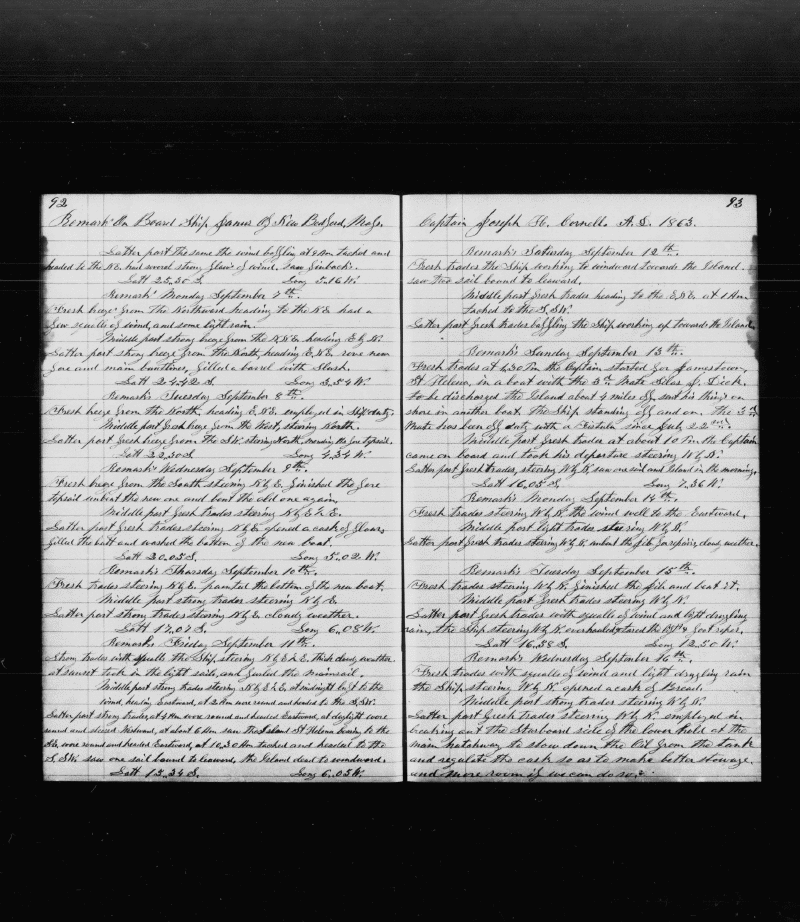 92
Remarks On Board Ship James Of New Bedford, Mass.
Latter part the same the wind baffling at 8 Am tacked and
headed to the NE. had several strong flaws of wind. saw finbacks.
Latt 25.30 S. Long 5.16 W.
Remarks Monday September 7th.
Fresh breeze from the Northward heading to the NE had a
few squalls of wind, and some light rain.
Middle part strong breeze from the NNE heading E by N.
Latter part strong breeze from the North, heading ENE, rove new
fore and main buntlines, filled a barrel with Slush.
Latt 24.42 S. Long 3.54 W.
Remarks Tuesday September 8th.
Fresh breeze from the North, heading ENE employed in Ship duty.
Middle part fresh breeze from the West, steering North.
Latter part fresh breeze from the SW. steering North, mending the fore topsail.
Latt 22.30 S Long 4.34 W.
Remarks Wednesday September 9th.
Fresh breeze from the South steering N by E. finished the fore
topsail unbent the new one and bent the old one again.
Middle part fresh trades steering N by E ½ E.
Latter part fresh trades steering N by E opened a cask of flour,
filled the butt and washed the bottom of the new boat.
Latt 20.05 S. Long 5.02 W.
Remarks Thursday September 10th.
Fresh trades steering N by E. painted the bottom of the new boat.
Middle part strong trades steering N by E.
Latter part strong trades steering N by E cloudy weather.
Latt 17.07 S. Long 6.08 W.
Remarks Friday September 11th.
Strong trades with squalls the Ship steering N by E ½ E. thick cloudy weather.
at sunset took in the light sails, and furled the mainsail.
Middle part strong trades steering N by E ½ E, at midnight luft to the
wind, heading Eastward, at 2 Am wore round and headed to the SSW.
Latter part strong trades, at 4 Am wore round and headed Eastward, at daylight wore
round and steered Westward, at about 6 Am saw the Island St Helena bearing to the
wore round and headed Eastward, at 10,30 Am tacked and headed to the
S. SW. saw one sail bound to leeward, the Island dead to windward.
Latt 15.34 S. Long 6.05 W.
93
Captain Joseph H. Cornell. A.D. 1863.
Remarks Saturday September 12th.
Fresh trades the Ship working to windward towards the Island.
saw two sail bound to leeward.
Middle part fresh trades heading to the ENE at 1 Am.
tacked to the S.SW.
Latter part fresh trades baffling the Ship working up towards the Island.
Remarks Sunday September 13th.
Fresh trades at 4,30 Pm the Captain started for Jamestown,
St Helena, in a boat with the 3rd Mate Silas J. Dick.
to be discharged the Island about 4 miles off sent his things on
shore in another boat. the Ship standing off and on. the 3rd
Mate has been off duty with a Fistula since July 22nd.
Middle part fresh trades at about 10 Pm the Captain
came on board and took his departure steering W by N.
Latter part fresh trades, steering W by N. saw one sail and Island in the morning.
Latt 16.05 S. Long 7.36 W.
Remarks Monday September 14th.
Fresh trades steering W by N. the wind well to the Eastward.
Middle part light trades steering W by N.
Latter part fresh trades steering W by N. unbent the jib for repairs, cloudy weather.
Remarks Tuesday September 15th.
Fresh trades steering W by N. finished the jib and bent it.
Middle part fresh trades steering W by N.
Latter part fresh trades with squalls of wind and light drizzling
rain, the Ship steering W by N. overhauled, & foot ropes.
Latt 16.38 S. Long 12.30 W.
Remarks Wednesday September 16th.
Fresh trades with squalls of wind and light drizzling rain
the Ship steering W by N. opened a cask of bread.
Middle part fresh trades steering W by N.
Latter part fresh trades steering W by N. employed in
breaking out the Starboard side of the lower hold at the
main hatchway to stow down the Oil from the tank
and regulate the cask so as to make better stowage.
and more room if we can do so.